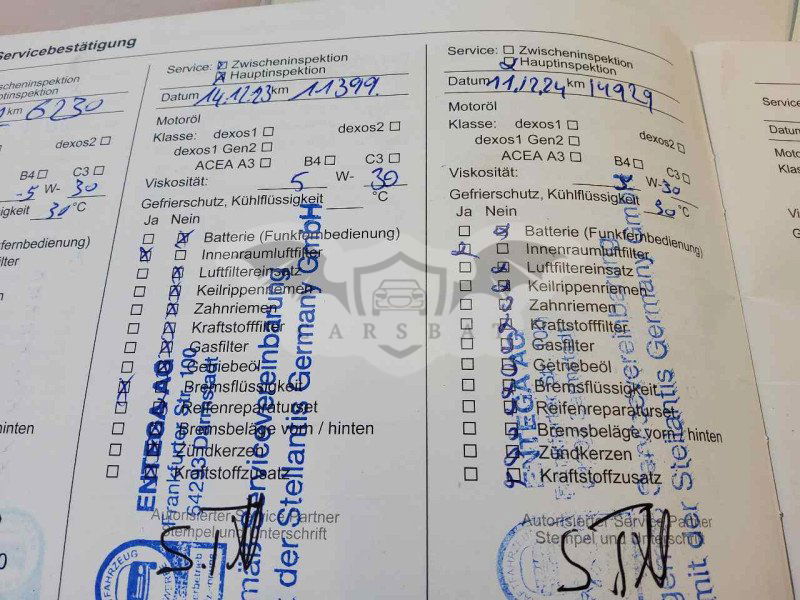 Servicebestätigung
scheninspektion
ptinspektion
km 6230
dexos2
B4 C3
-5 W- 30
igkeit 30 °C
fernbedienung)
lter
n
hinten
Service: Zwischeninspektion
Hauptinspektion
Datum 14.12.23 km 11399
Motoröl
Klasse: dexos1 dexos2
dexos1 Gen2
ACEA A3 B4 C3
Viskosität: 5 W- 30
Gefrierschutz, Kühlflüssigkeit °C
Ja Nein
Batterie (Funkfernbedienung)
Innenraumluftfilter
Luftfiltereinsatz
Keilrippenriemen
Zahnriemen
Kraftstofffilter
Gasfilter
Getriebeöl
Bremsflüssigkeit
Reifenreparaturset
Bremsbeläge vorn / hinten
Zündkerzen
Kraftstoffzusatz
Autorisierter Service Partner
Stempel und Unterschrift
ENTEGA AG
Frankfurter Str. 100
64293 Darmstadt
Servicevereinbarung
der Stellantis Germany GmbH
FAHRZEUG
Service: Zwischeninspektion
Hauptinspektion
Datum 11.12.24 km 14929
Motoröl
Klasse: dexos1 dexos2
dexos1 Gen2
ACEA A3 B4 C3
Viskosität: 5 W-30
Gefrierschutz, Kühlflüssigkeit 30 °C
Ja Nein
Batterie (Funkfernbedienung)
Innenraumluftfilter
Luftfiltereinsatz
Keilrippenriemen
Zahnriemen
Kraftstofffilter
Gasfilter
Getriebeöl
Bremsflüssigkeit
Reifenreparaturset
Bremsbeläge vorn / hinten
Zündkerzen
Kraftstoffzusatz
Autorisierter Service Partner
Stempel und Unterschrift
ENTEGA AG
Servicevereinbarung
mit der Stellantis Germany GmbH
Service
Datum
Moto
Klas
Vis
G
ARSBAT